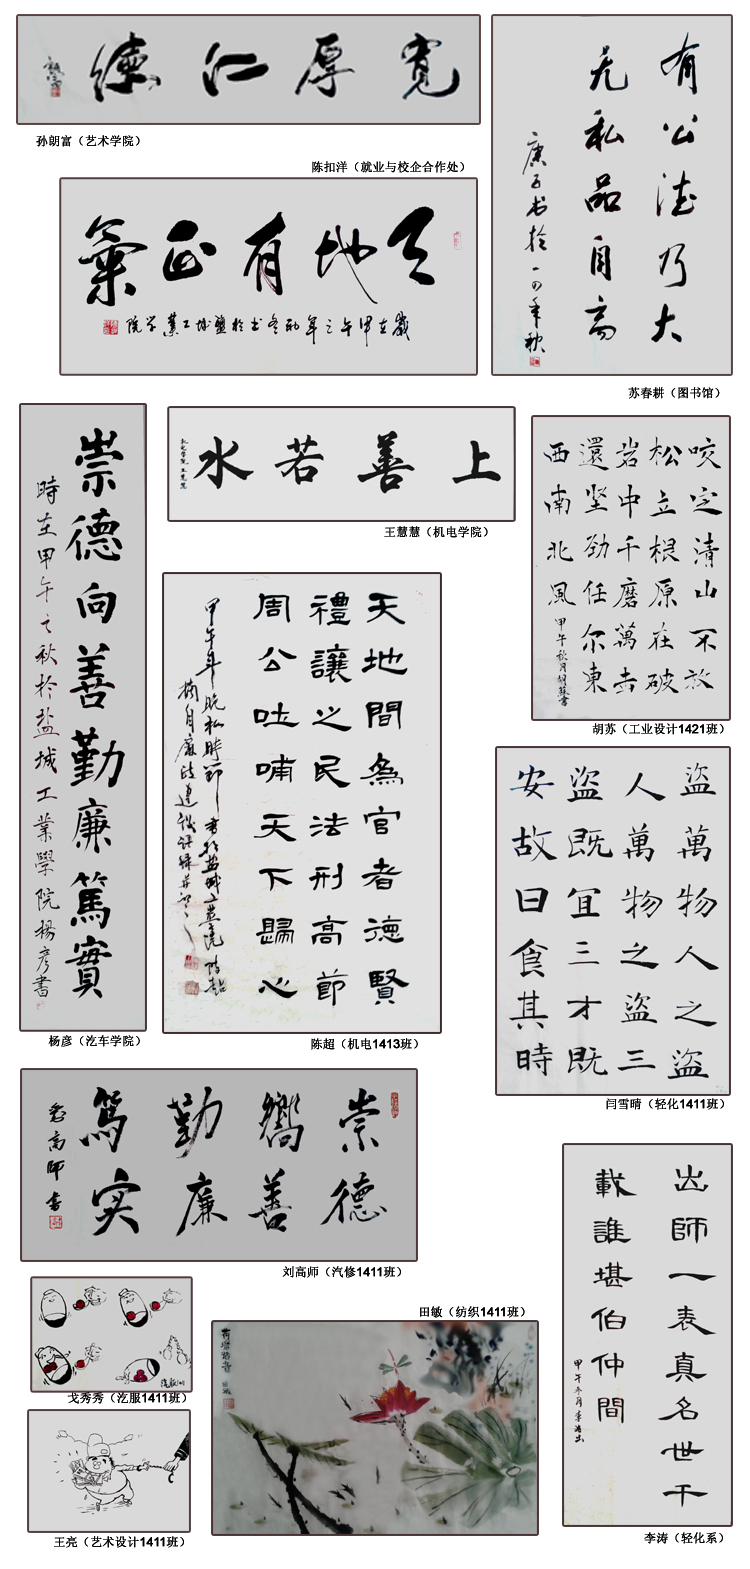 寬厚仁德
孙朗富（艺术学院）
陈扣洋（就业与校企合作处）
天地有正氣
歲在甲午之年初冬书於盐城工業学院
有公德乃大
无私品自高
书於一四年秋
苏春耕（图书馆）
崇德向善勤廉篤實
時在甲午之秋於盐城工業學院楊彥書
杨彦（汔车学院）
上善若水
机电学院王慧慧
王慧慧（机电学院）
咬定清山不放
松立根原在破
岩中千磨萬击
還坚劲任尔東
西南北風
甲午秋月胡蘇書
胡苏（工业设计1421班）
天地間為官者德賢
禮讓之民法刑高節
周公吐哺天下歸心
陈超（机电1413班）
盜萬物人之盜
人萬物之盜三
盜既宜三才既
安故曰食其時
闫雪晴（轻化1411班）
崇德
嚮善
勤廉
篤实
高師書
刘高师（汽修1411班）
戈秀秀（汔服1411班）
王亮（艺术设计1411班）
田敏（纺织1411班）
出師一表真名世千
載誰堪伯仲間
甲午冬月李濤出
李涛（轻化系）